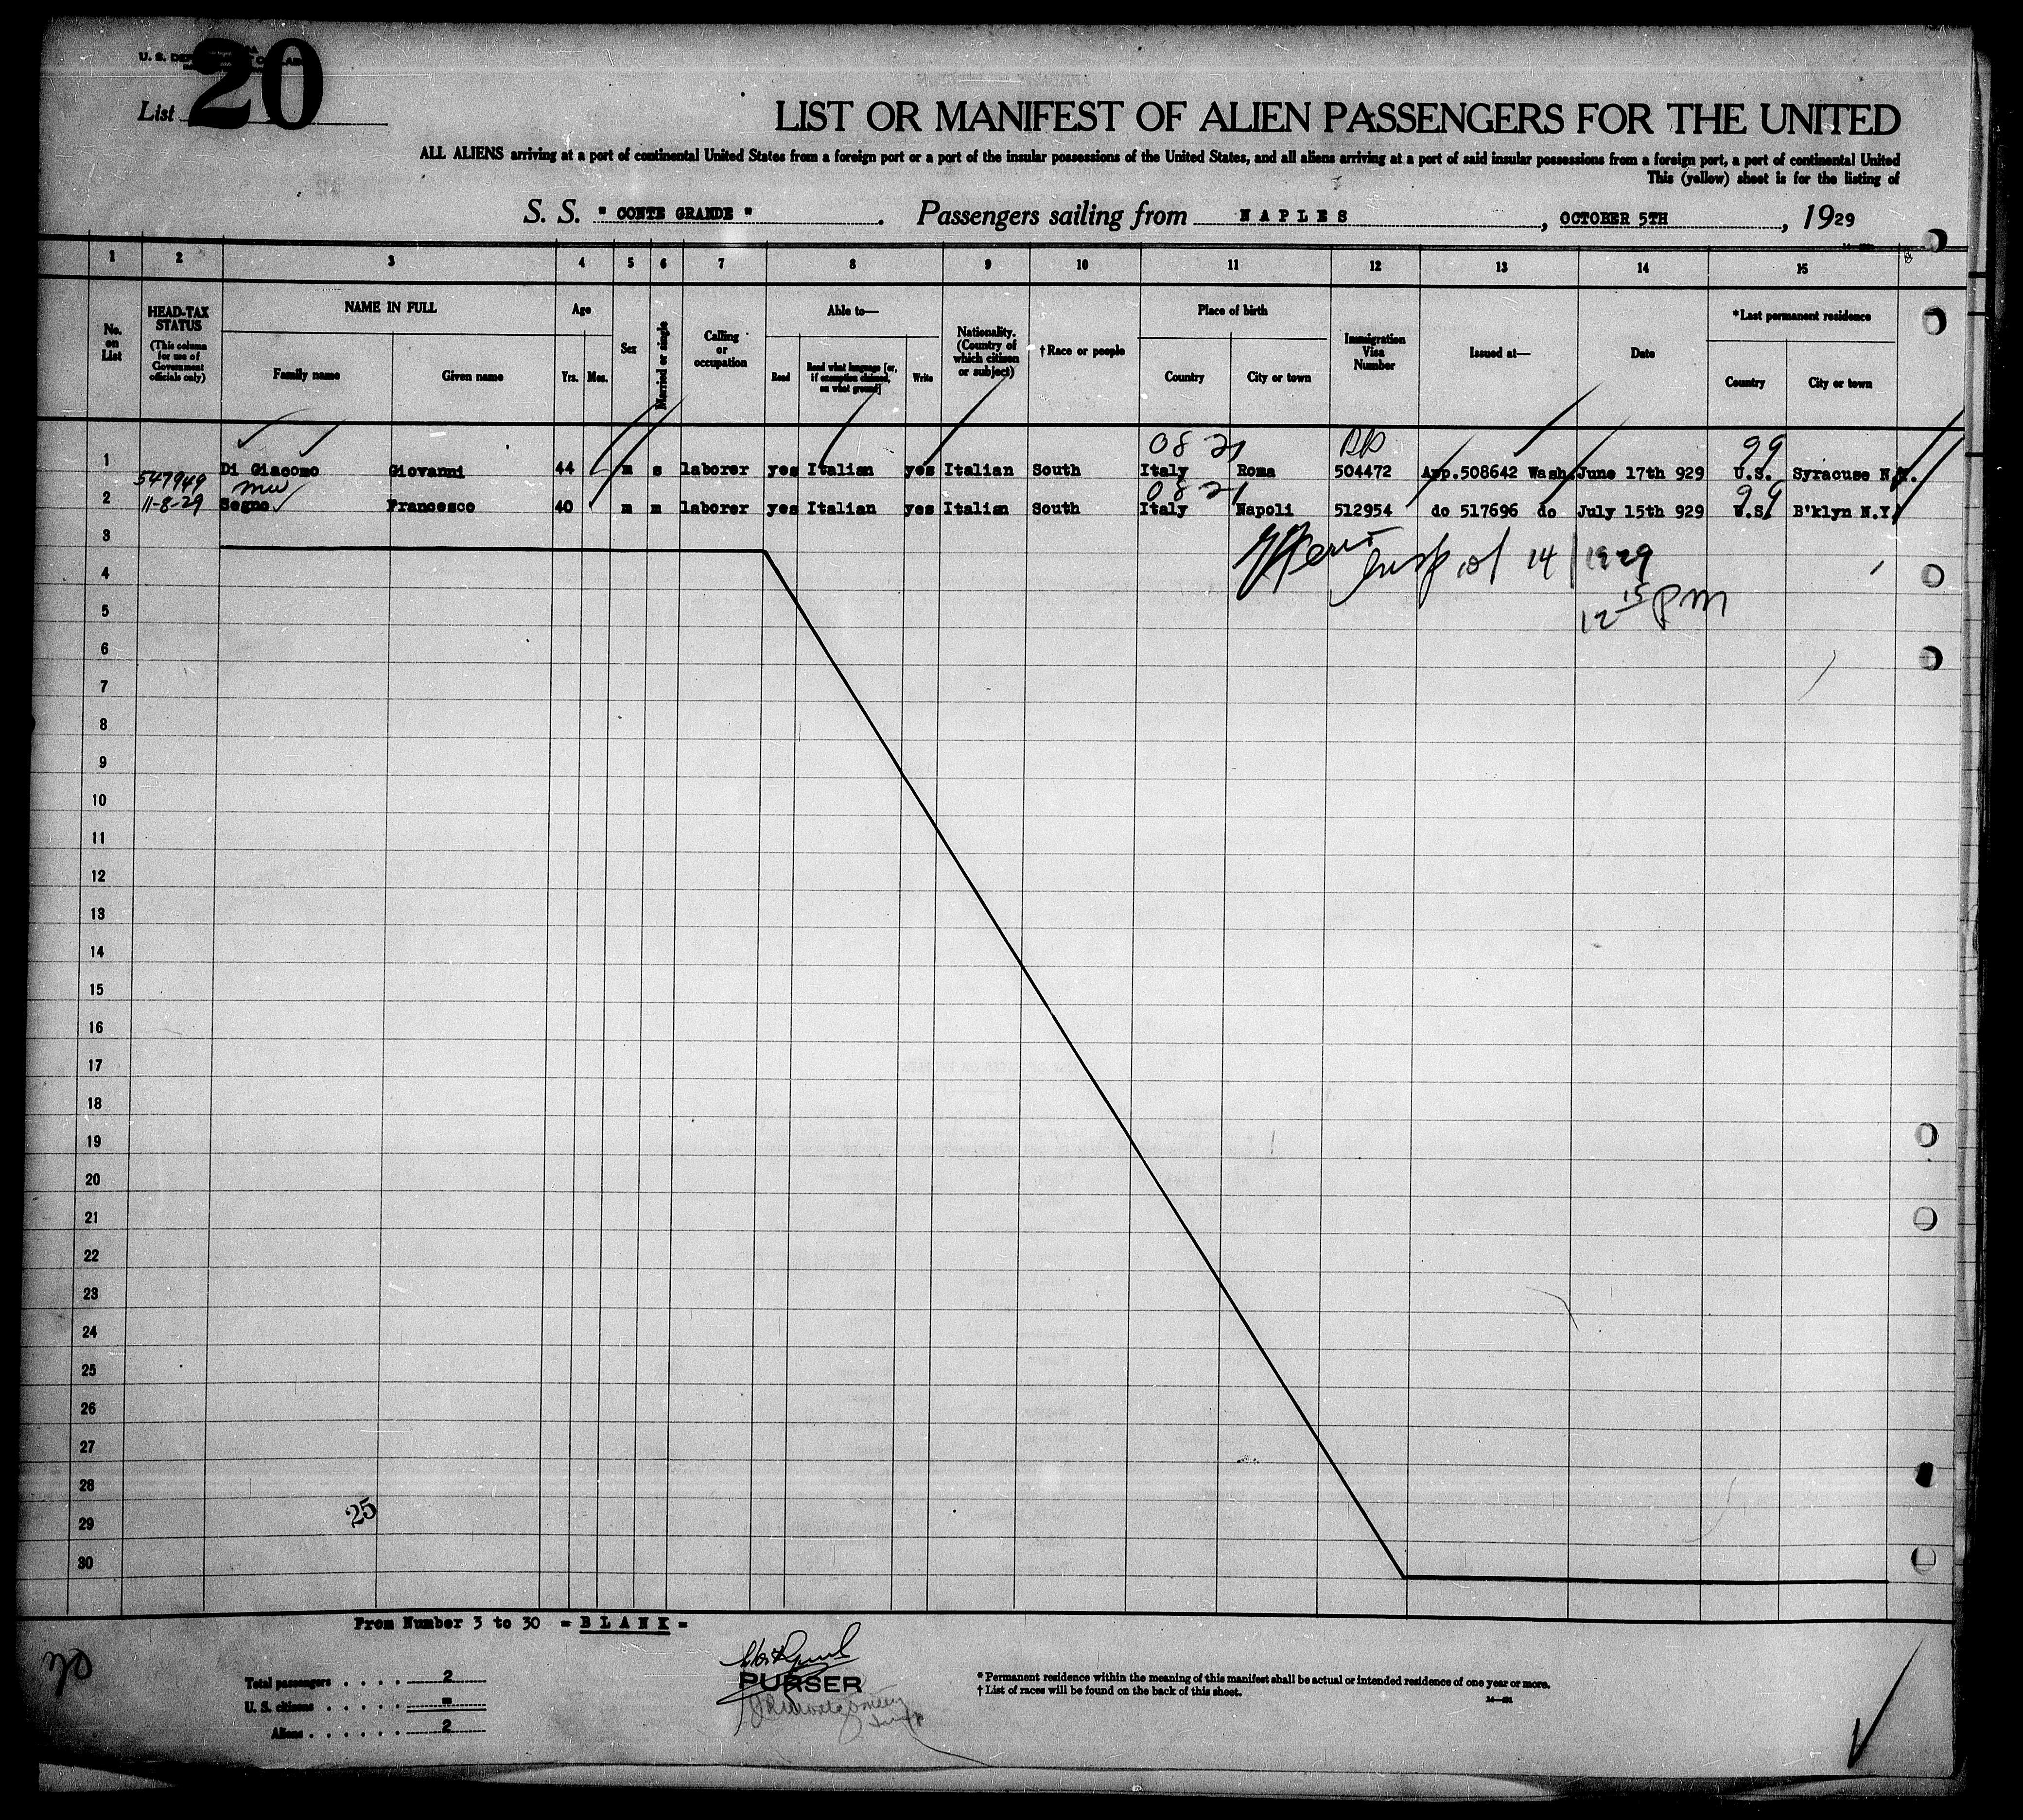 U. S. DEP
List 20
LIST OR MANIFEST OF ALIEN PASSENGERS FOR THE UNITED
ALL ALIENS arriving at a port of continental United States from a foreign port or a port of the insular possessions of the United States, and all aliens arriving at a port of said insular possessions from a foreign port, a port of continental United
This (yellow) sheet is for the listing of
S. S. " CONTE GRANDE ". Passengers sailing from NAPLES, OCTOBER 5TH, 1929
1 2 3 4 5 6 7 8 9 10 11 12 13 14 15
No. on List
HEAD-TAX STATUS (This column for use of Government officials only)
NAME IN FULL
Family name Given name
Age
Yrs. Mos.
Sex
Married or single
Calling or occupation
Able to—
Read Read what language [or, if exemption claimed, on what ground] Write
Nationality. (Country of which citizen or subject)
† Race or people
Place of birth
Country City or town
Immigration Visa Number
Issued at—
Date
* Last permanent residence
Country City or town
08 21 99
1 Di Giacomo Giovanni 44 m s laborer yes Italian yes Italian South Italy Roma 504472 App.508642 Wash. June 17th 929 U.S. Syracuse N.Y.
547949
08 21 99
2 11-8-29 Segno Francesco 40 m m laborer yes Italian yes Italian South Italy Napoli 512954 do 517696 do July 15th 929 U.S. B'klyn N.Y.
3
14 1929
4
12 15 PM
5
6
7
8
9
10
11
12
13
14
15
16
17
18
19
20
21
22
23
24
25
26
27
28
25
29
30
From Number 3 to 30 = BLANK =
Total passengers . . . . 2
U. S. citizens . . . . . =
Aliens . . . . . . 2
PURSER
* Permanent residence within the meaning of this manifest shall be actual or intended residence of one year or more.
† List of races will be found on the back of this sheet.